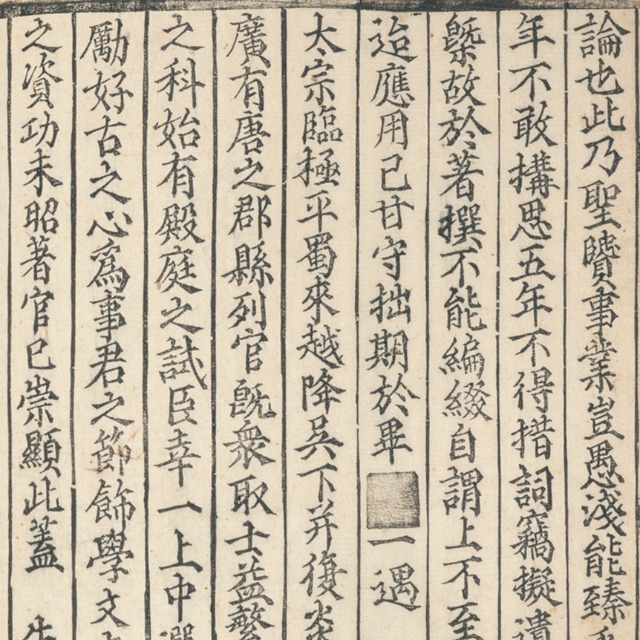 論也此乃聖賢事業豈愚淺能臻
年不敢搆思五年不得措詞竊擬
槩故於著撰不能編綴自謂上不至
迨應用已甘守拙期於畢一遇
太宗臨極平蜀來越降吳下并復
廣有唐之郡縣列官既衆取士益繁
之科始有殿庭之試臣幸一上中選
勵好古之心為事君之節飾學文
之資功未昭著官已崇顯此蓋